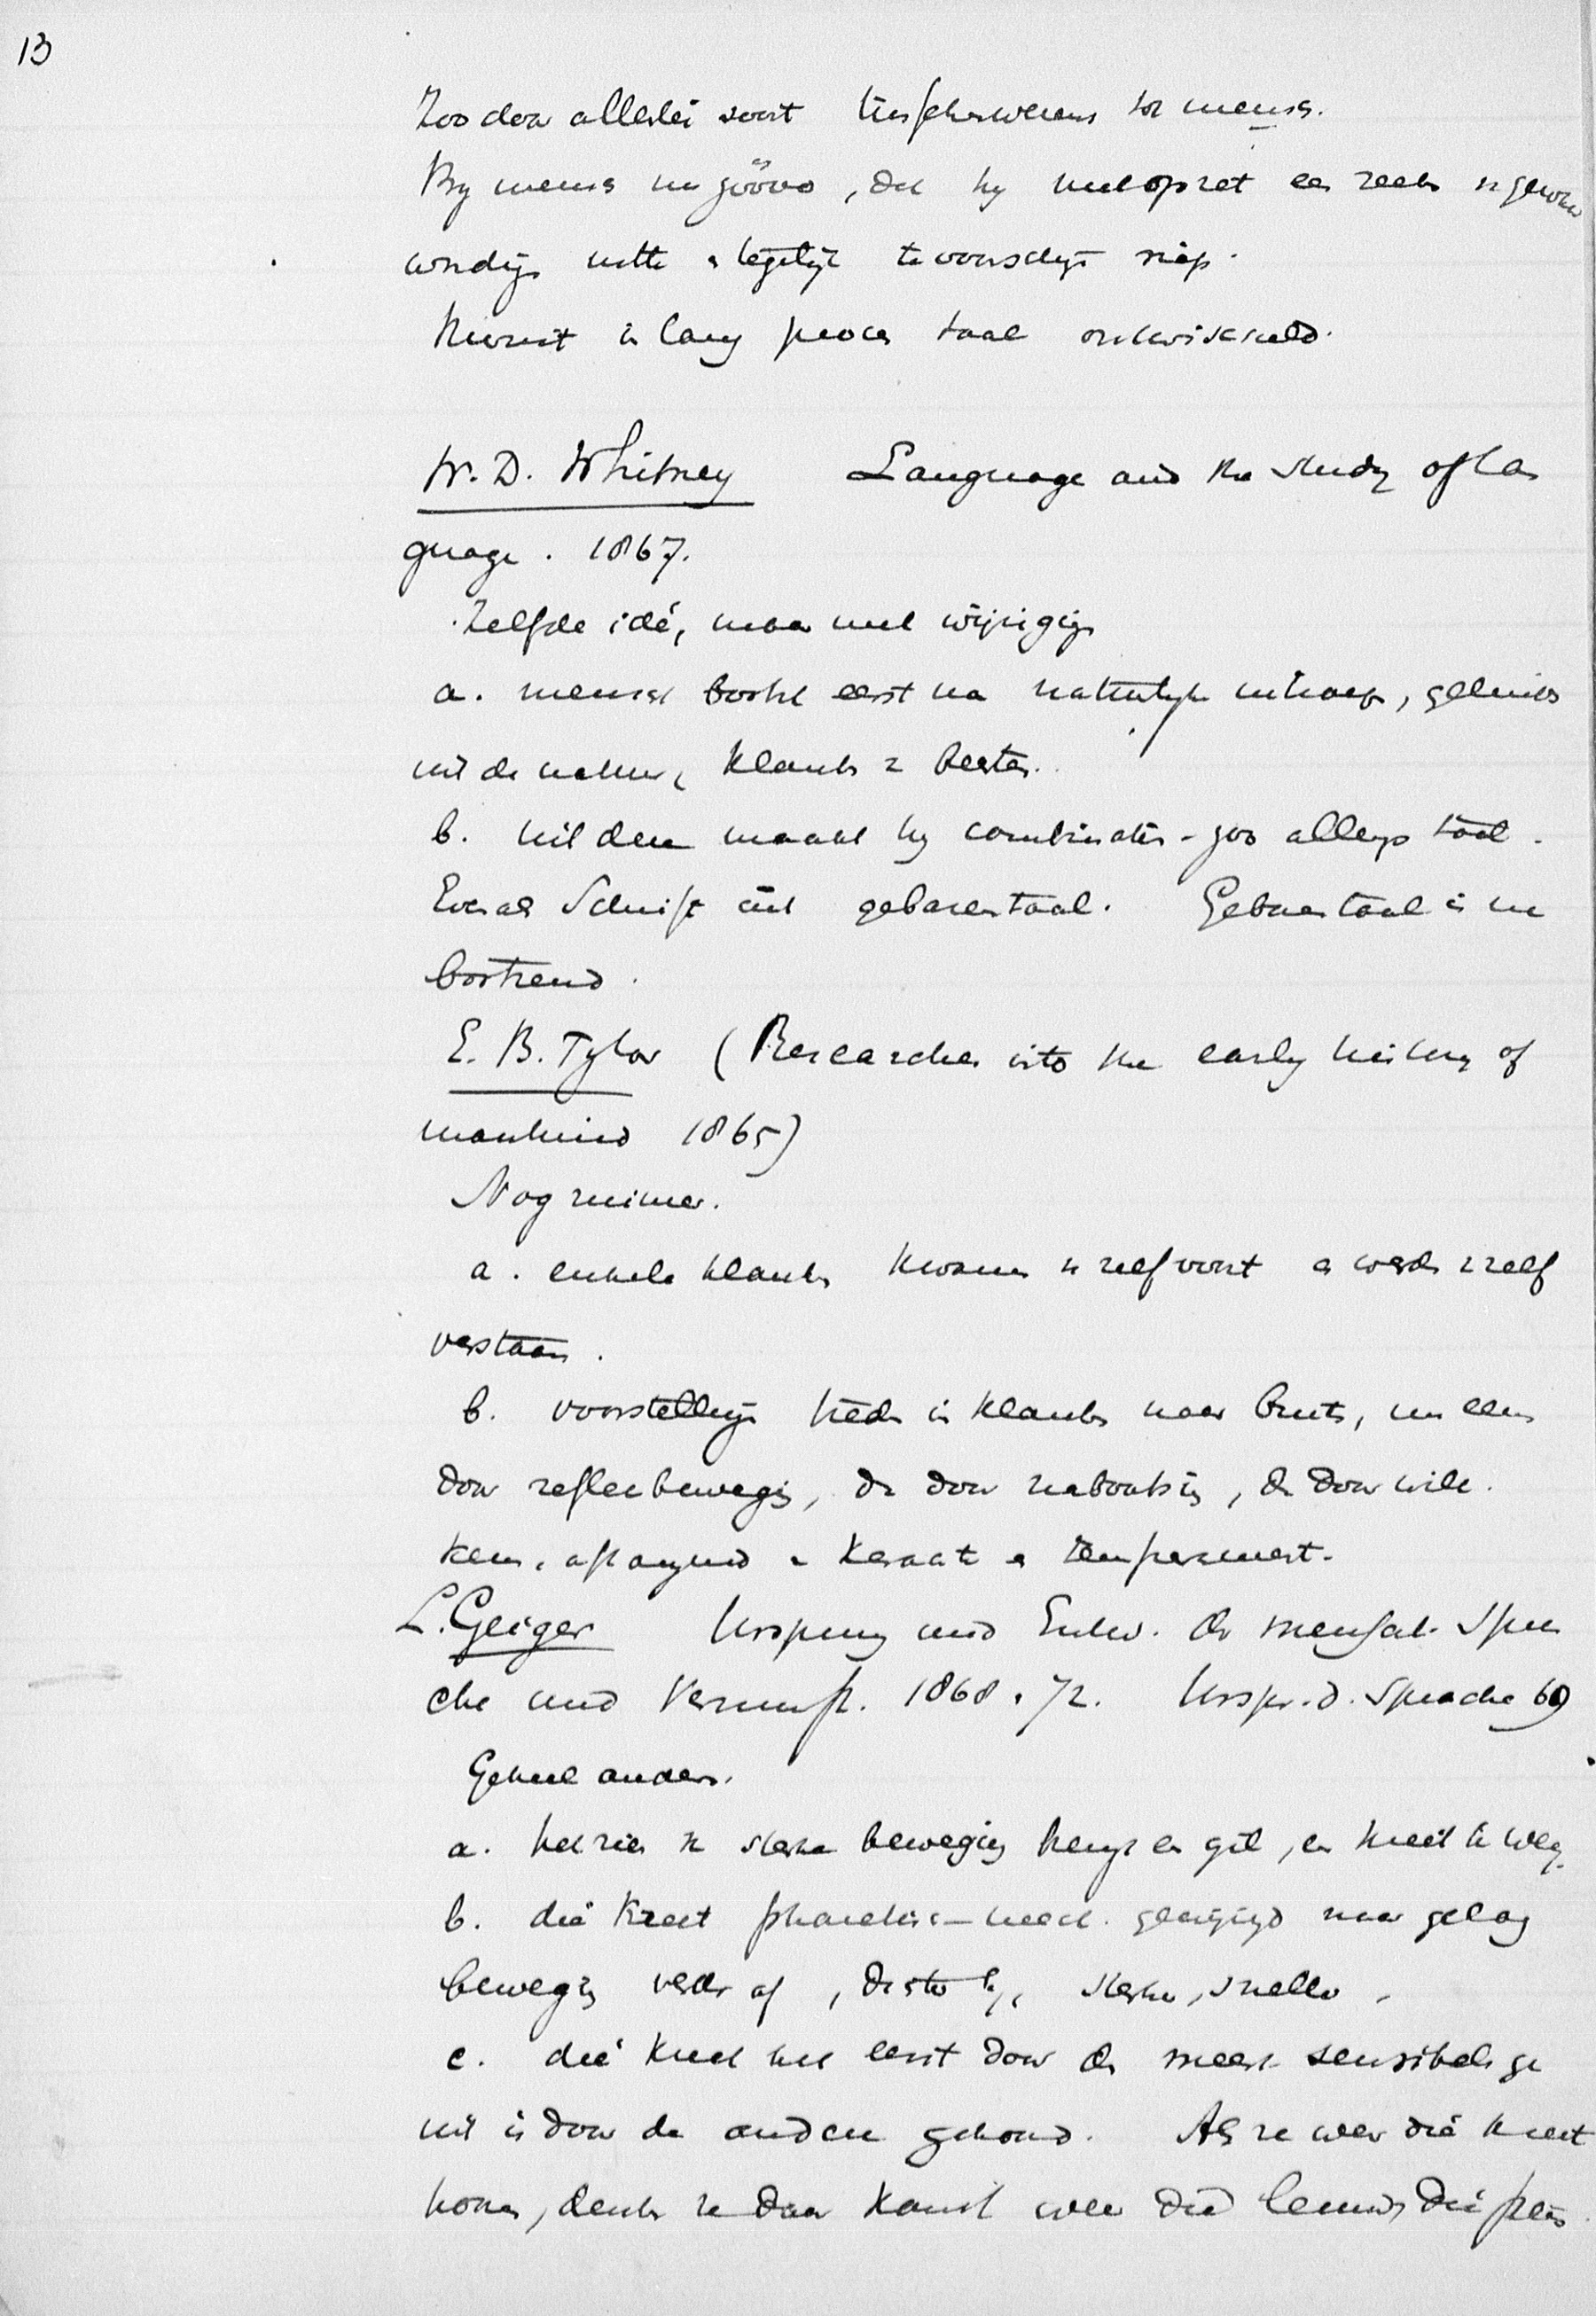 13
Zoo door allerlei soort tot mensch.
By mensch nu zóóvo, dat hy met opzet een reeks
wendige en tegelijk te voorschijn riep.
Hieruit in lang proces taal ontwikkeld.
W. D. Whitney Language and the study of lan
guage. 1867.
Zelfde idé, maar met wijziging
a. mensch bootst eerst na natuurlyke , geluiden
uit de natuur, klanken v beesten.
b. uit deze maakt hy combinatien - zoo allengs taal.
Evenals Schrift uit gebarentaal. Gebarentaal is na
bootsend.
E. B. Tylor (Researches into the early history of
mankind 1865)
Nog ruimer.
a. enkele klanken kwamen v zelf voort en werden v zelf
verstaan.
b. voorstellingen treden in klanken naar buiten, nu eens
door reflexbeweging, dan door nabootsing, dan door wille
keur, afhangend v karakter en temperament.
L. Geiger Ursprung und Entw. der menschl. Spra
che und Vernunft. 1868. 72. Urspr. d. Sprache 69
Geheel anders.
a. het zien v sterke beweging een gil, een kreet te weeg.
b. die kreet phonetisch gewijzigd naar gelang
beweging verder af, dichter by, sterker, sneller.
c. die kreet het eerst door de meest sensibele ge
uit is door de anderen gehoord. Als ze weer die kreet
horen, denken ze daar komt weer die